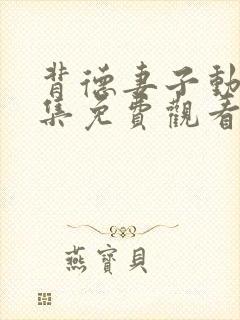 背德妻子動
集免費觀看
燕寶貝